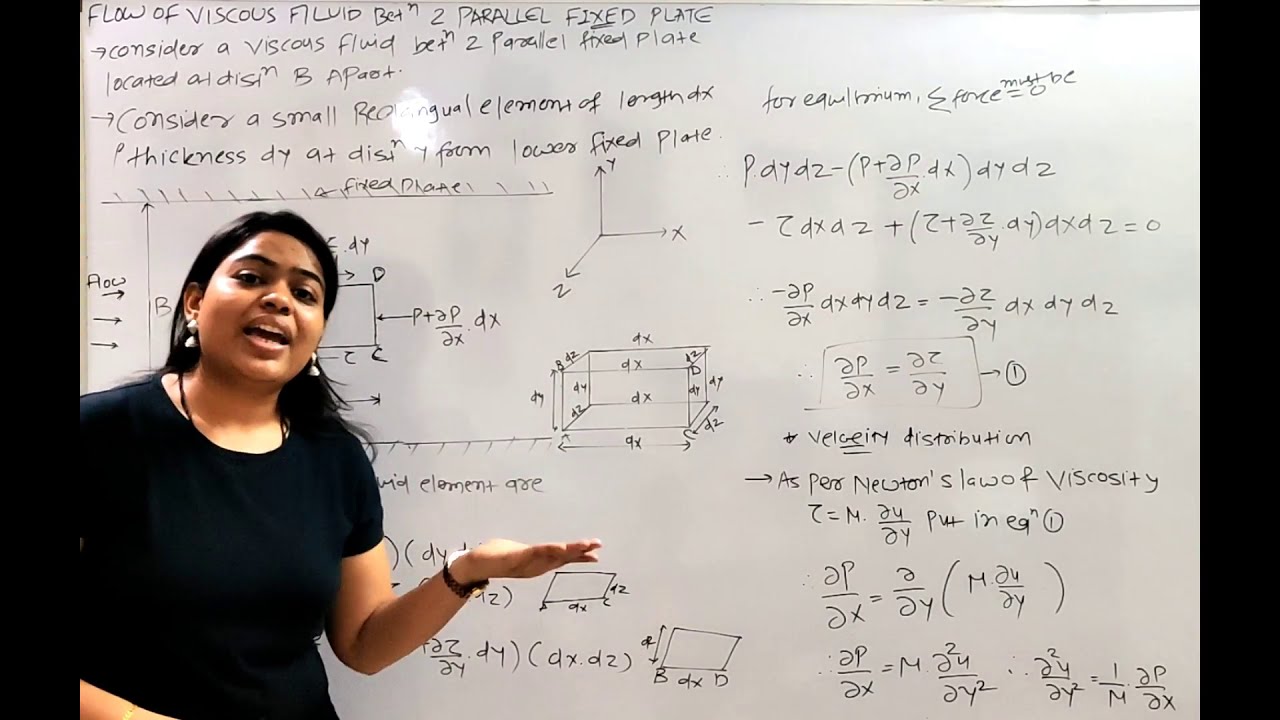 FLOW OF VISCOUS FLUID Betⁿ 2 PARALLEL FIXED PLATE
→ consider a viscous fluid betⁿ 2 Parallel fixed Plate
located at distⁿ B Apart.
→ Consider a small Rectangual element of length dx
& thickness dy at distⁿ y from lower fixed Plate.
← fixed Plate
Y
X
Z
Flow
B
. dy
D
P+∂P/∂x . dx
τ
C
dx
dz
dx
dz
B
D
dy
dy
dy
dy
dx
dz
dz
C
dx
uid element are
)(dy
dz)
dx
C
dz
∂τ/∂y . dy)(dx.dz)
dz
B dx D
for equilibrium, Σ force = 0 must be
∴ P.dydz - (P+∂P/∂x . dx) dy dz
- τ dx dz + (τ+∂τ/∂y . dy) dx dz = 0
∴ -∂P/∂x dx dy dz = -∂τ/∂y dx dy dz
∴ ∂P/∂x = ∂τ/∂y → ①
* velocity distribution
→ As Per Newton's law of Viscosity
τ = M. ∂u/∂y Put in eqⁿ ①
∴ ∂P/∂x = ∂/∂y (M.∂u/∂y)
∴ ∂P/∂x = M.∂²u/∂y² ∴ ∂²u/∂y² = 1/M . ∂P/∂x